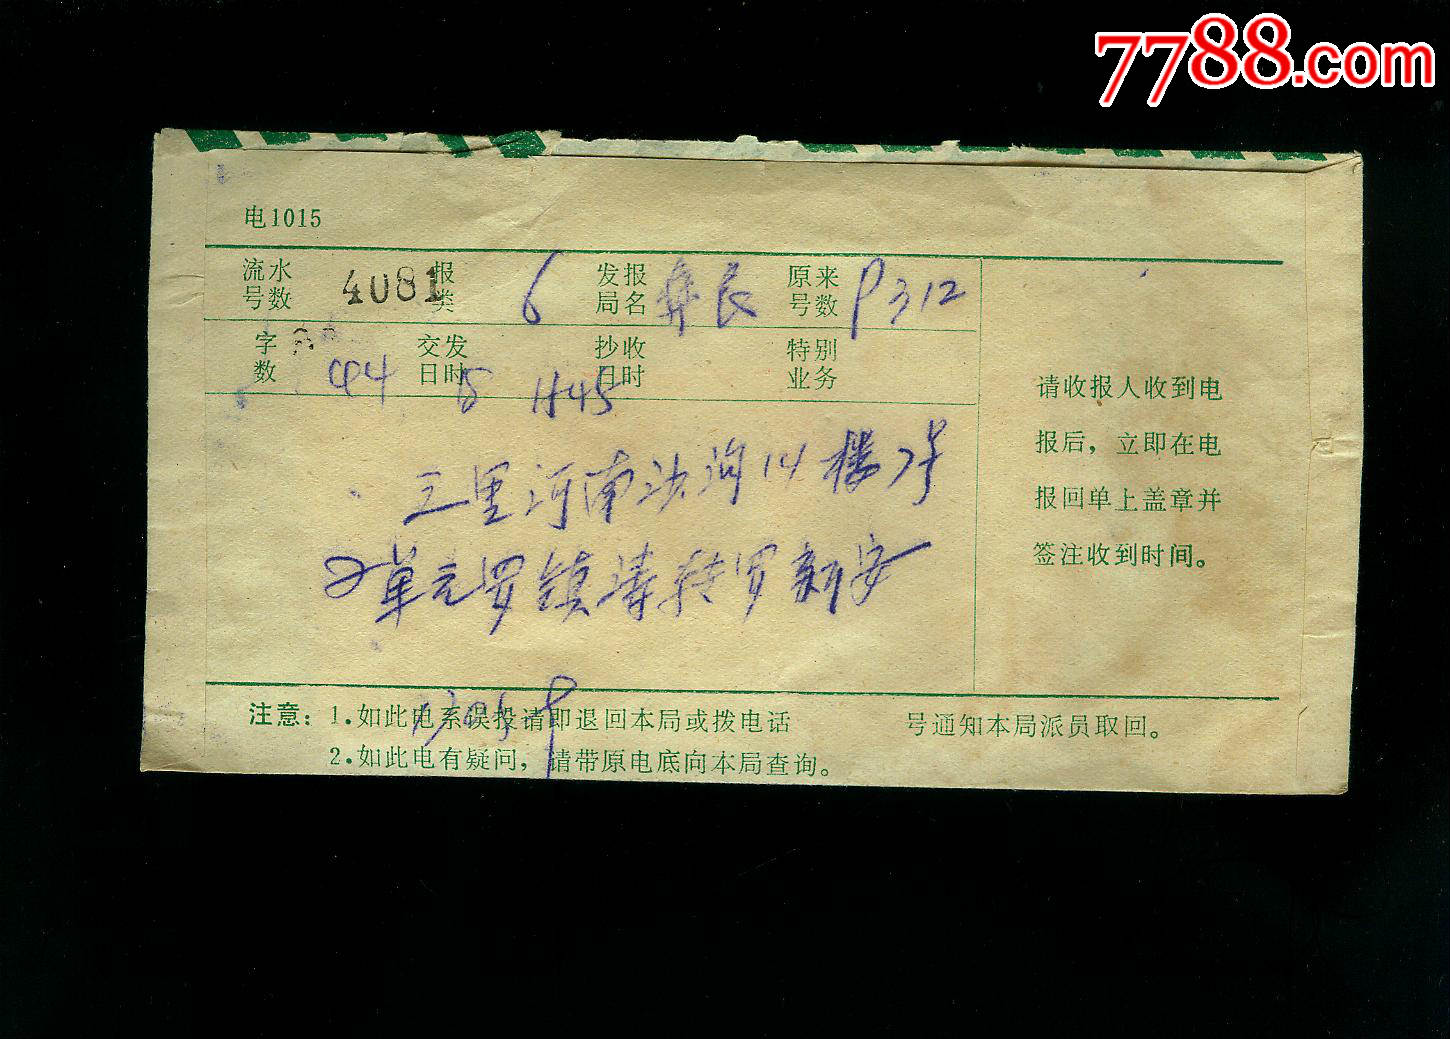 7788.com
电1015
流水号数 4081 报类 6 发报局名 原来号数 P312
字数 44 交发日时 15 抄收日时 1145 特别业务
三里河南沙沟14楼7号
2单元罗镇涛转罗新安
请收报人收到电
报后，立即在电
报回单上盖章并
签注收到时间。
注意：1.如此电系误投请即退回本局或拨电话 号通知本局派员取回。
2.如此电有疑问，请带原电底向本局查询。